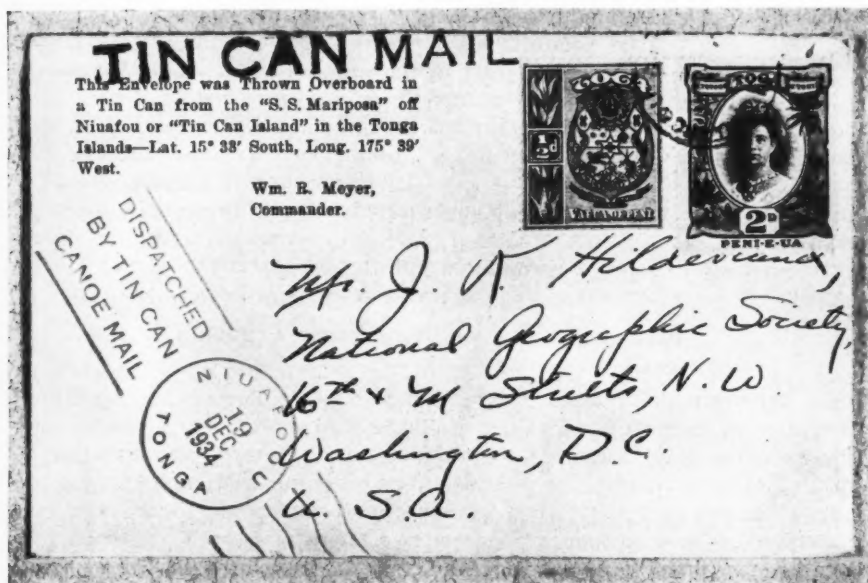 TIN CAN MAIL
This Envelope was Thrown Overboard in
a Tin Can from the "S. S. Mariposa" off
Niuafou or "Tin Can Island" in the Tonga
Islands—Lat. 15° 38' South, Long. 175° 39'
West.
Wm. R. Meyer,
Commander.
TOGA
½d
TOGA
2D
PENI-E-UA
DISPATCHED
BY TIN CAN
CANOE MAIL
NIUAFOOU
19
DEC
1934
TONGA
Mr. J
National Geographic Society,
16th & M Streets, N.W
Washington, D.C.
U. S. A.